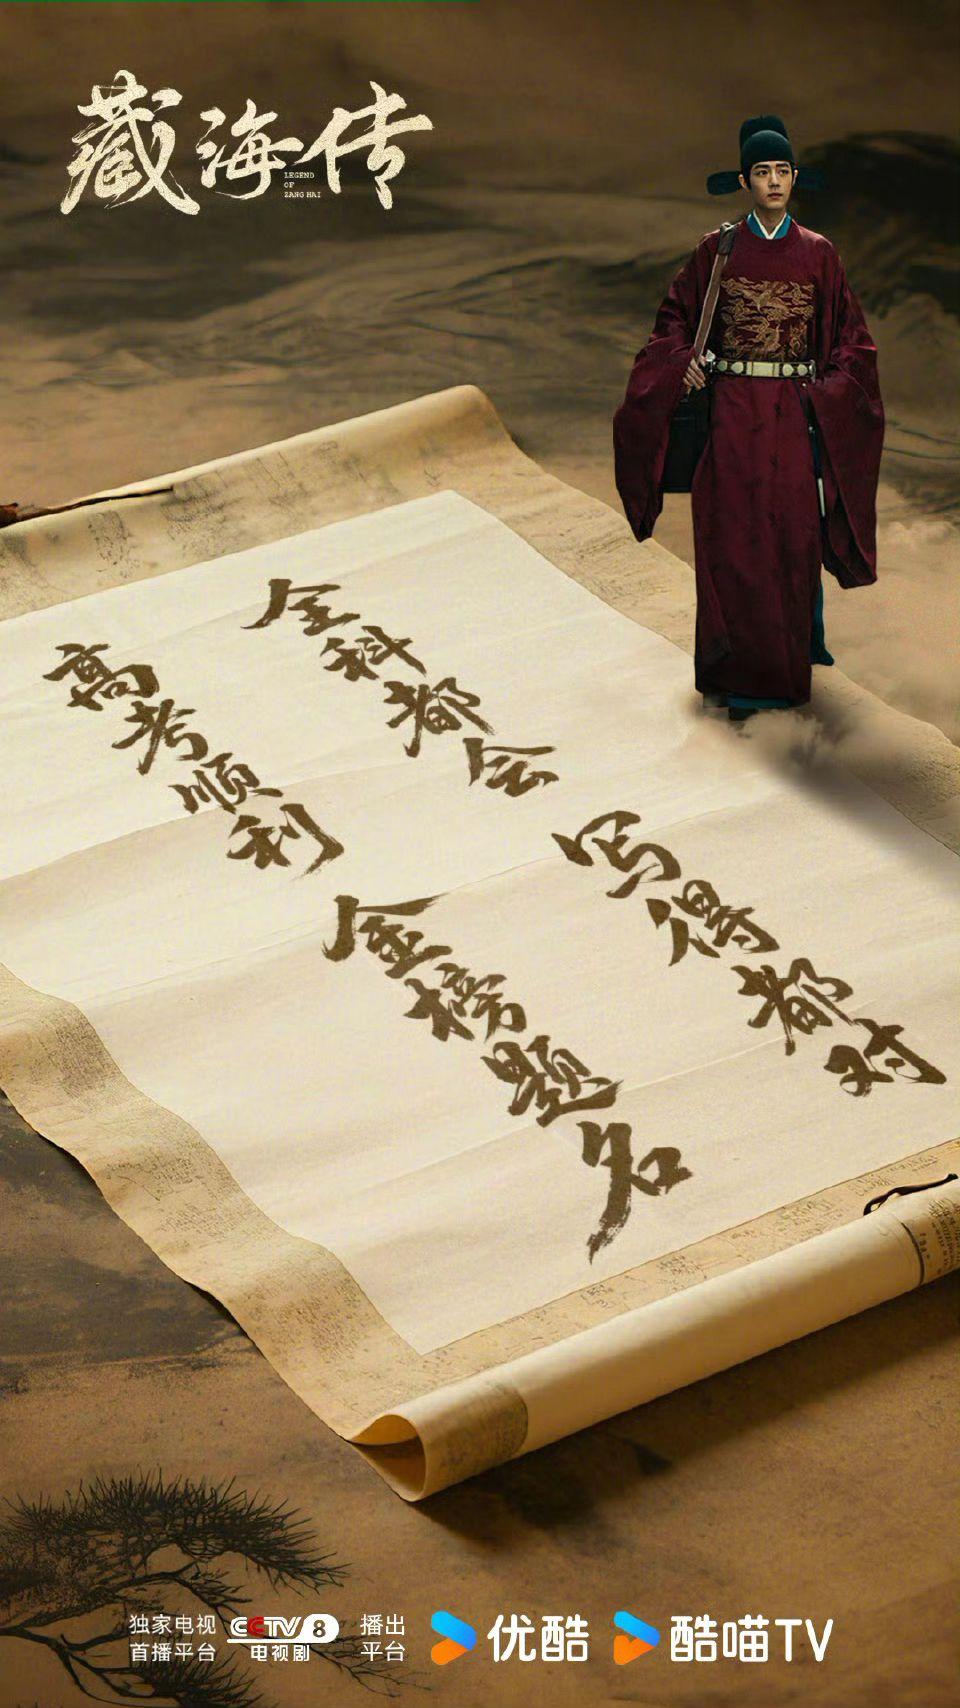 藏海传
LEGEND
OF
ZANG HAI
全科都会
写得都对
高考顺利
金榜题名
独家电视
首播平台
CCTV 8
电视剧
播出
平台
优酷
酷喵TV